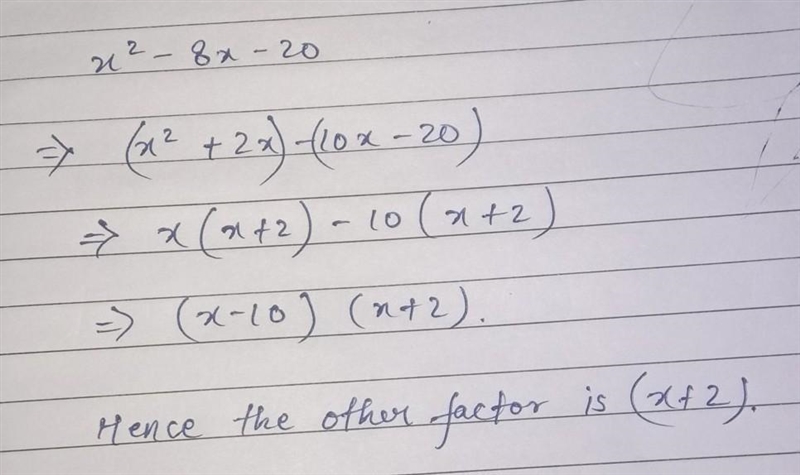 x² - 8x - 20
⇒ (x² + 2x) - (10x - 20)
⇒ x(x+2) - 10(x+2)
⇒ (x-10) (x+2).
Hence the other factor is (x+2).